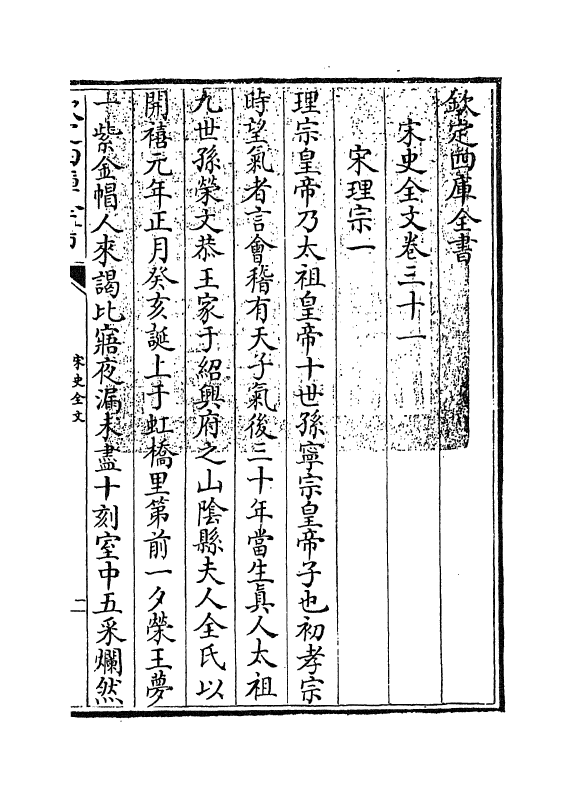 欽定四庫全書
宋史全文卷三十一
宋理宗一
理宗皇帝乃太祖皇帝十世孫寧宗皇帝子也初孝宗
時望氣者言會稽有天子氣後三十年當生真人太祖
九世孫榮文恭王家于紹興府之山陰縣夫人全氏以
開禧元年正月癸亥誕上于虹橋里第前一夕榮王夢
一紫金帽人來謁比寤夜漏未盡十刻室中五采爛然
欽定四庫全書
宋史全文
二